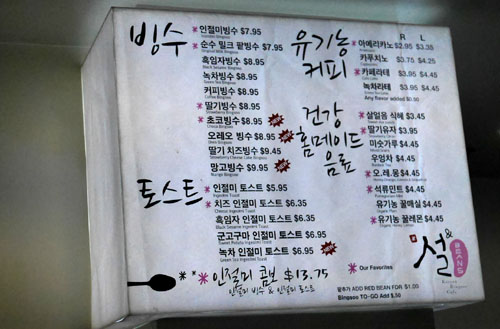 빙수
* 인절미빙수 $7.95
* 순수 밀크 팥빙수 $7.95
흑임자빙수 $8.95
녹차빙수 $8.95
커피빙수 $8.95
* 딸기빙수 $8.95
* 초코빙수 $8.95
오레오 빙수 $8.95
딸기 치즈빙수 $9.45
망고빙수 $9.95
토스트
* 인절미 토스트 $5.95
* 치즈 인절미 토스트 $6.35
흑임자 인절미 토스트 $6.35
군고구마 인절미 토스트 $6.95
녹차 인절미 토스트 $6.95
* * 인절미 콤보 $13.75
인절미 빙수 & 인절미 토스트
유기농 커피
R L
* 아메리카노 $2.95 $3.35
카푸치노 $3.75 $4.25
* 카페라테 $3.95 $4.45
녹차라테 $3.95 $4.45
Any flavor added $0.50
건강 홈메이드 음료
* 살얼음 식혜 $3.45
* 딸기유자 $3.95
미숫가루 $4.45
우엉차 $4.45
* 오.레.몽 $4.45
* 석류민트 $4.45
유기농 꿀매실 $4.45
유기농 꿀레몬 $4.45
* Our Favorites
팥추가 ADD RED BEAN FOR $1.00
Bingsoo TO-GO Add $.50
설 & BEANS
Korean Bingsoo Cafe